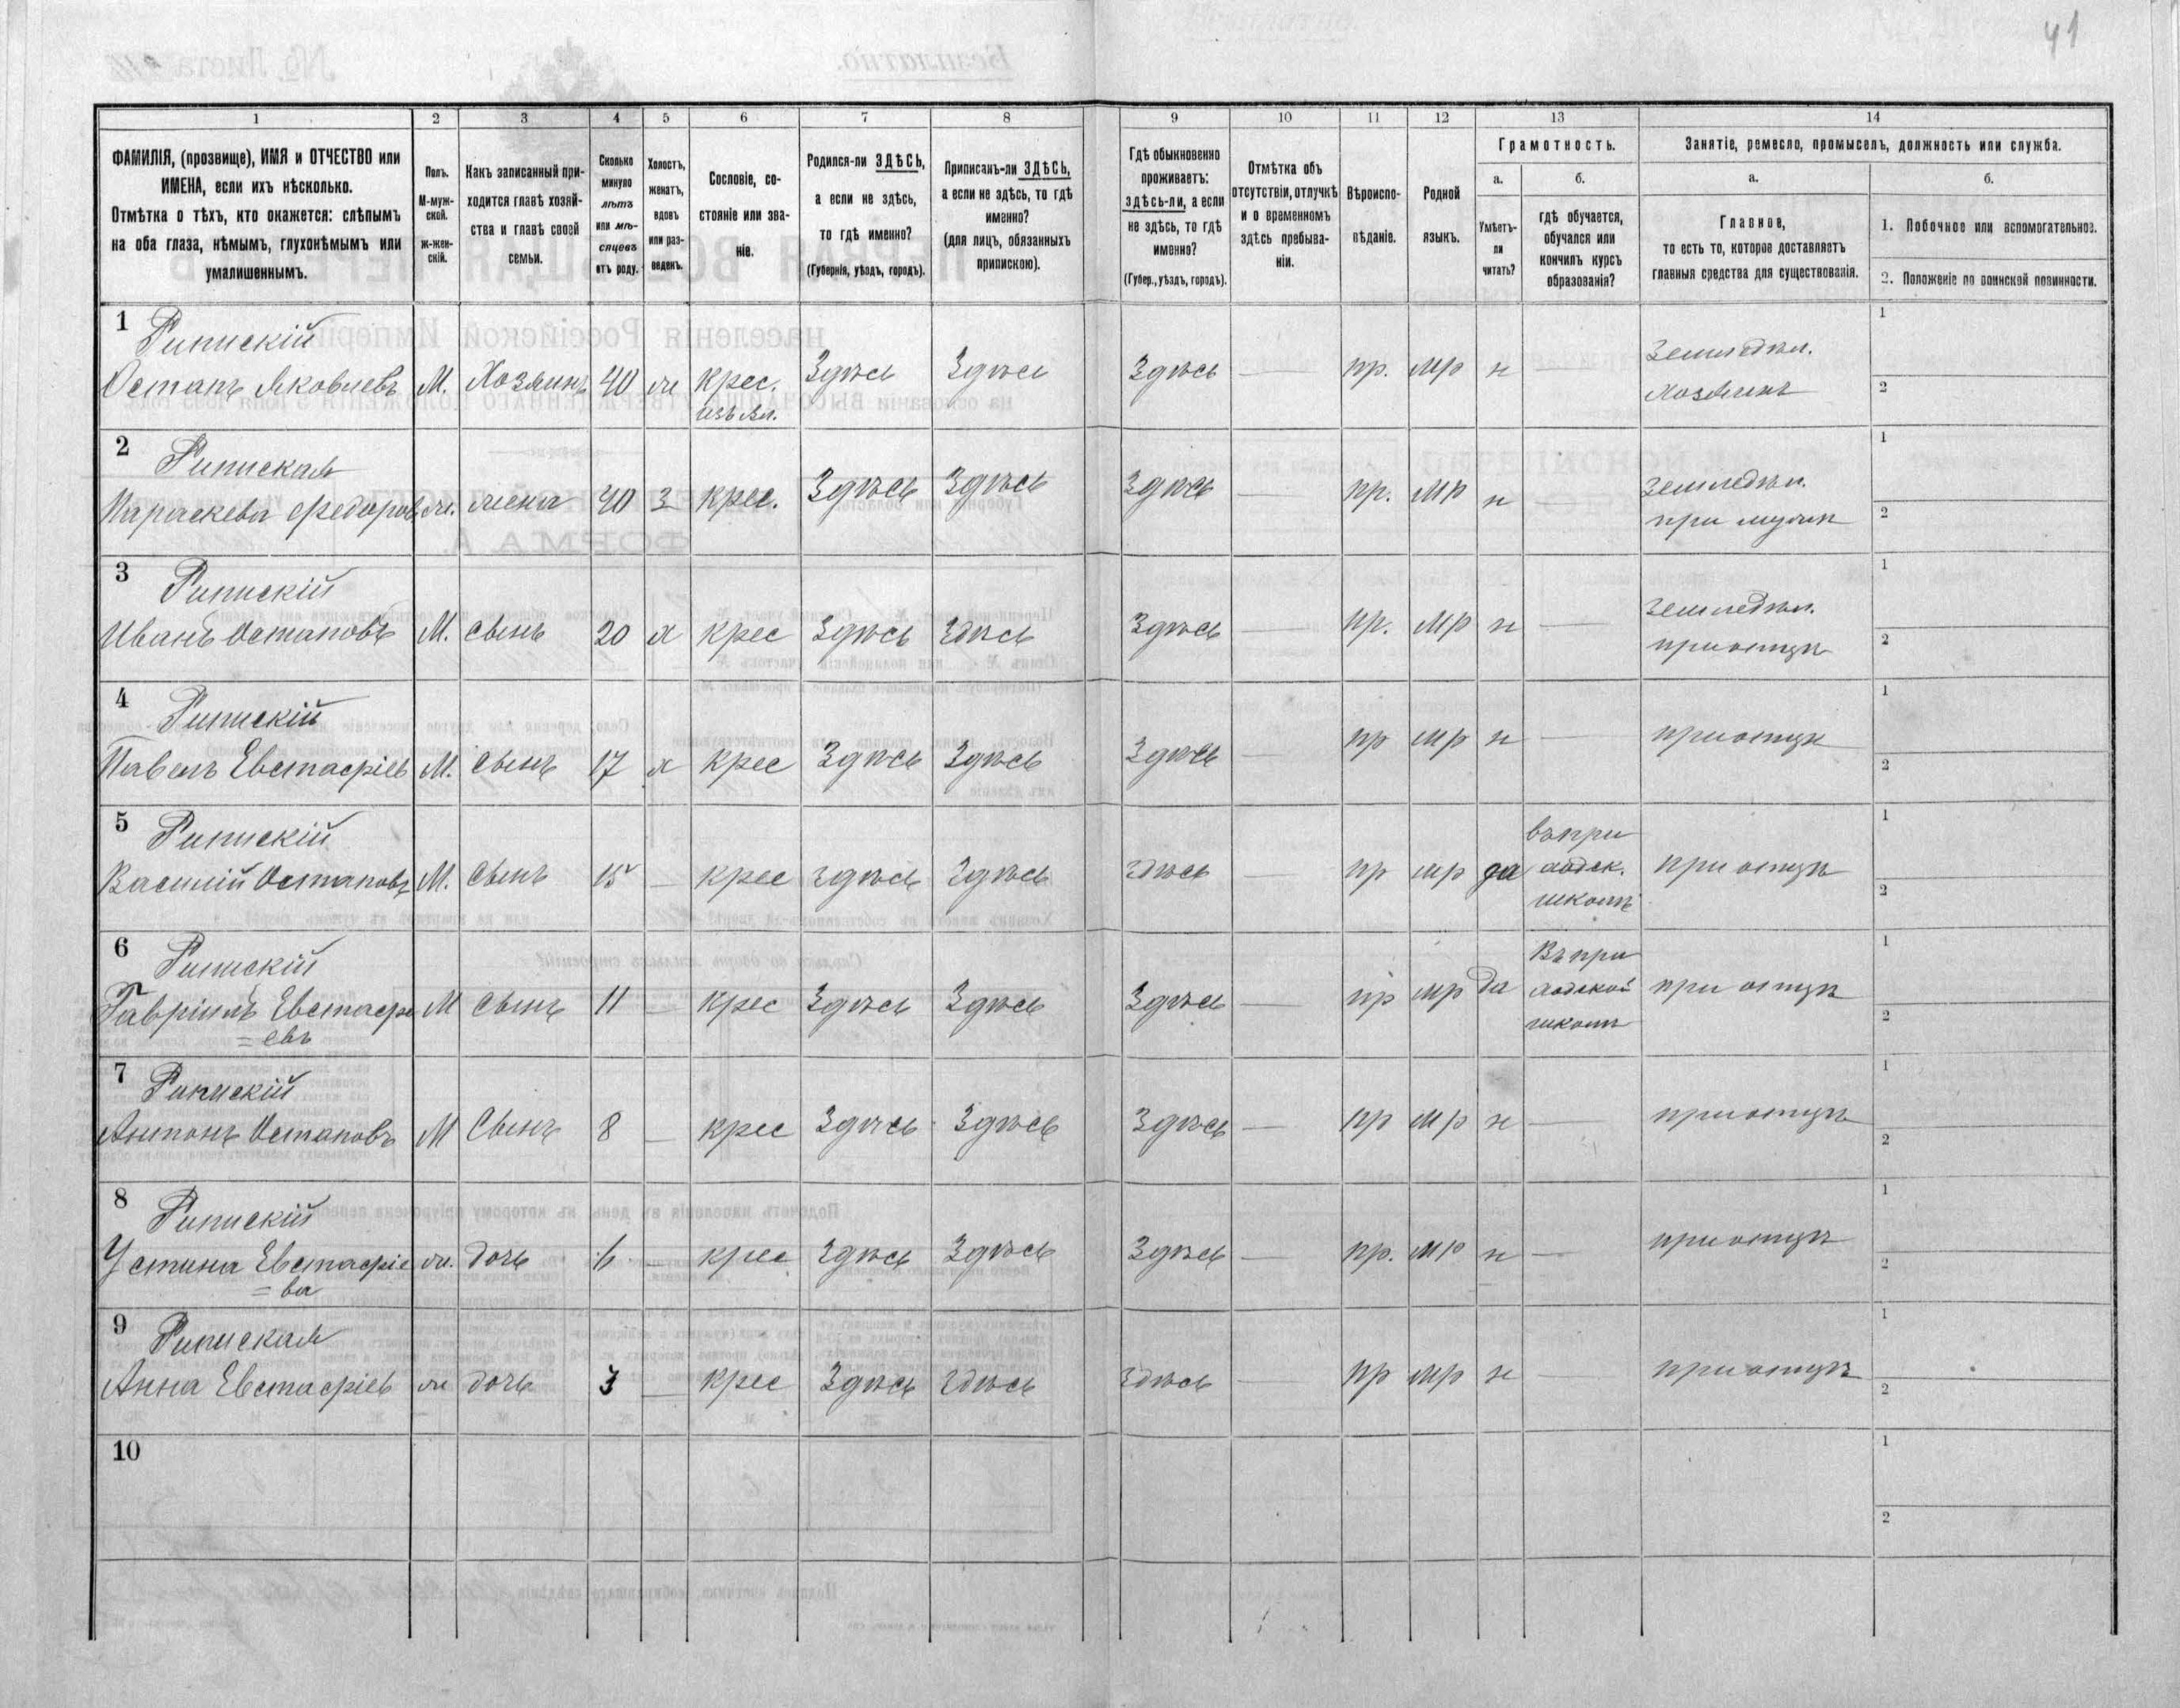 41
1 2 3 4 5 6 7 8 9 10 11 12 13 14
ФАМИЛІЯ, (прозвище), ИМЯ и ОТЧЕСТВО или
ИМЕНА, если ихъ нѣсколько.
Отмѣтка о тѣхъ, кто окажется: слѣпымъ
на оба глаза, нѣмымъ, глухонѣмымъ или
умалишеннымъ.
Полъ.
М-муж-
ской.
ж-жен-
скій.
Какъ записанный при-
ходится главѣ хозяй-
ства и главѣ своей
семьи.
Сколько
минуло
лѣтъ
или мѣ-
сяцевъ
отъ роду.
Холостъ,
женатъ,
вдовъ
или раз-
веденъ.
Сословіе, со-
стояніе или зва-
ніе.
Родился-ли ЗДѢСЬ,
а если не здѣсь,
то гдѣ именно?
(Губернія, уѣздъ, городъ).
Приписанъ-ли ЗДѢСЬ,
а если не здѣсь, то гдѣ
именно?
(для лицъ, обязанныхъ
припискою).
Гдѣ обыкновенно
проживаетъ:
здѣсь-ли, а если
не здѣсь, то гдѣ
именно?
(Губер., уѣздъ, городъ).
Отмѣтка объ
отсутствіи, отлучкѣ
и о временномъ
здѣсь пребыва-
ніи.
Вѣроиспо-
вѣданіе.
Родной
языкъ.
Грамотность.
а.
Умѣетъ-
ли
читать?
б.
гдѣ обучается,
обучался или
кончилъ курсъ
образованія?
Занятіе, ремесло, промыселъ, должность или служба.
а.
Главное,
то есть то, которое доставляетъ
главныя средства для существованія.
б.
1. Побочное или вспомогательное.
2. Положеніе по воинской повинности.
1 Рипискій
Остапъ Яковлевъ М. Хозяинъ 40 ж крес. Здѣсь Здѣсь Здѣсь — пр. мр н — Земледѣл. 1
изъ вл. хозяинъ 2
2 Рипиская
Параскева Федоров ж. жена 40 З крес. Здѣсь Здѣсь Здѣсь — пр. мр н — земледѣл. 1
при мужѣ 2
3 Рипискій
Иванъ Остаповъ М. сынъ 20 х крес Здѣсь Здѣсь Здѣсь — пр. мр н — земледѣл. 1
при отцѣ 2
4 Рипискій
Павелъ Евстафіев М. сынъ 17 х крес Здѣсь Здѣсь Здѣсь — пр мр н — при отцѣ 1
2
5 Рипискій въ при 1
Василій Остаповъ М. сынъ 15 — крес здѣсь здѣсь здѣсь — пр мр да ходск. при отцѣ
школѣ 2
6 Рипискій Въ при 1
Гавріилъ Евстафі М сынъ 11 — крес Здѣсь Здѣсь Здѣсь — пр мр да ходской при отцѣ
=евъ школѣ 2
7 Рипискій 1
Антонъ Остаповъ М Сынъ 8 — крес Здѣсь Здѣсь Здѣсь — пр мр н — при отцѣ
2
8 Рипискій 1
Устина Евстафіе ж. дочь 6 — крес здѣсь Здѣсь Здѣсь — пр. мр н — при отцѣ
=ва 2
9 Рипиская 1
Анна Евстафіев ж дочь 3 — крес Здѣсь здѣсь здѣсь — пр мр н — при отцѣ
2
10 1
2